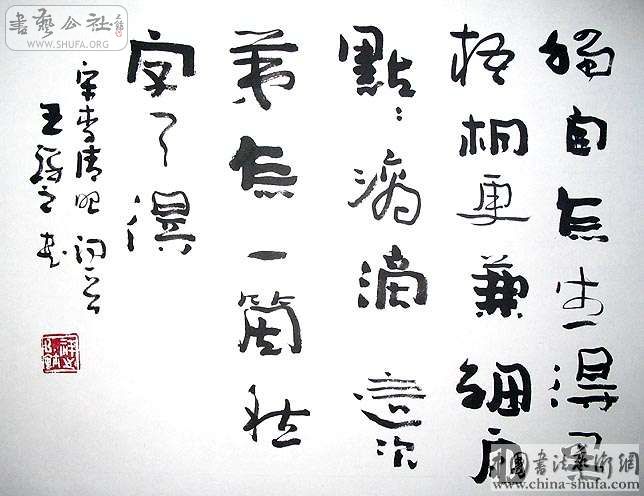 獨自怎生得黑
梧桐更兼細雨
點：滴滴這次
第怎一箇愁
字了得
宋李清照詞
王祥之書
書藝公社
WWW.SHUFA.ORG
中國書法藝術網
www.china-shufa.com